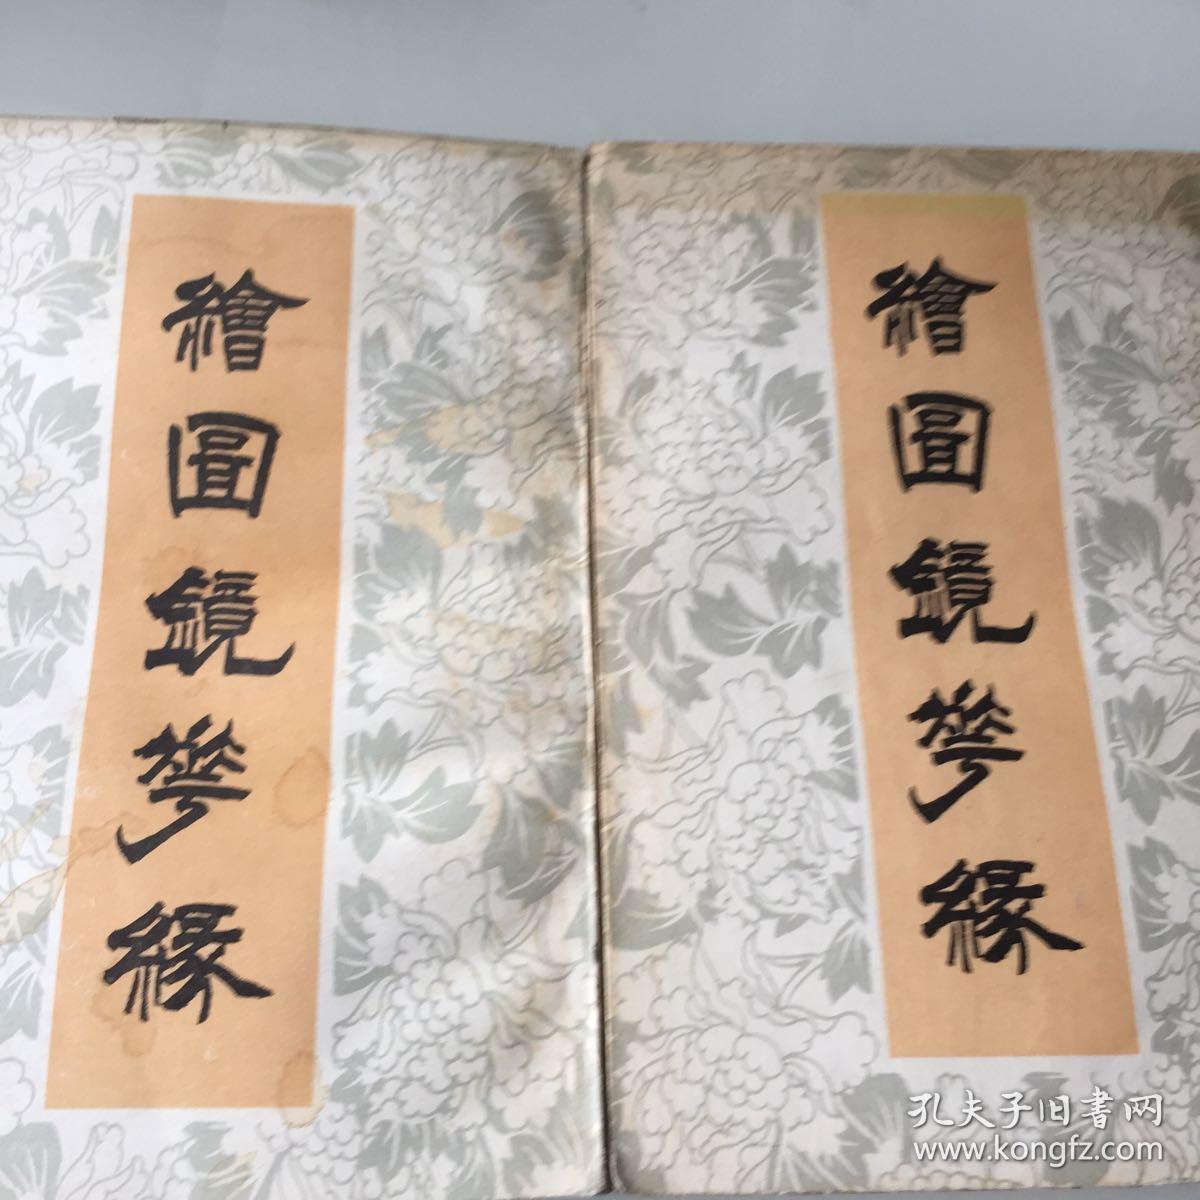 繪圖鏡花緣
繪圖鏡花緣
孔夫子旧書网
www.kongfz.com